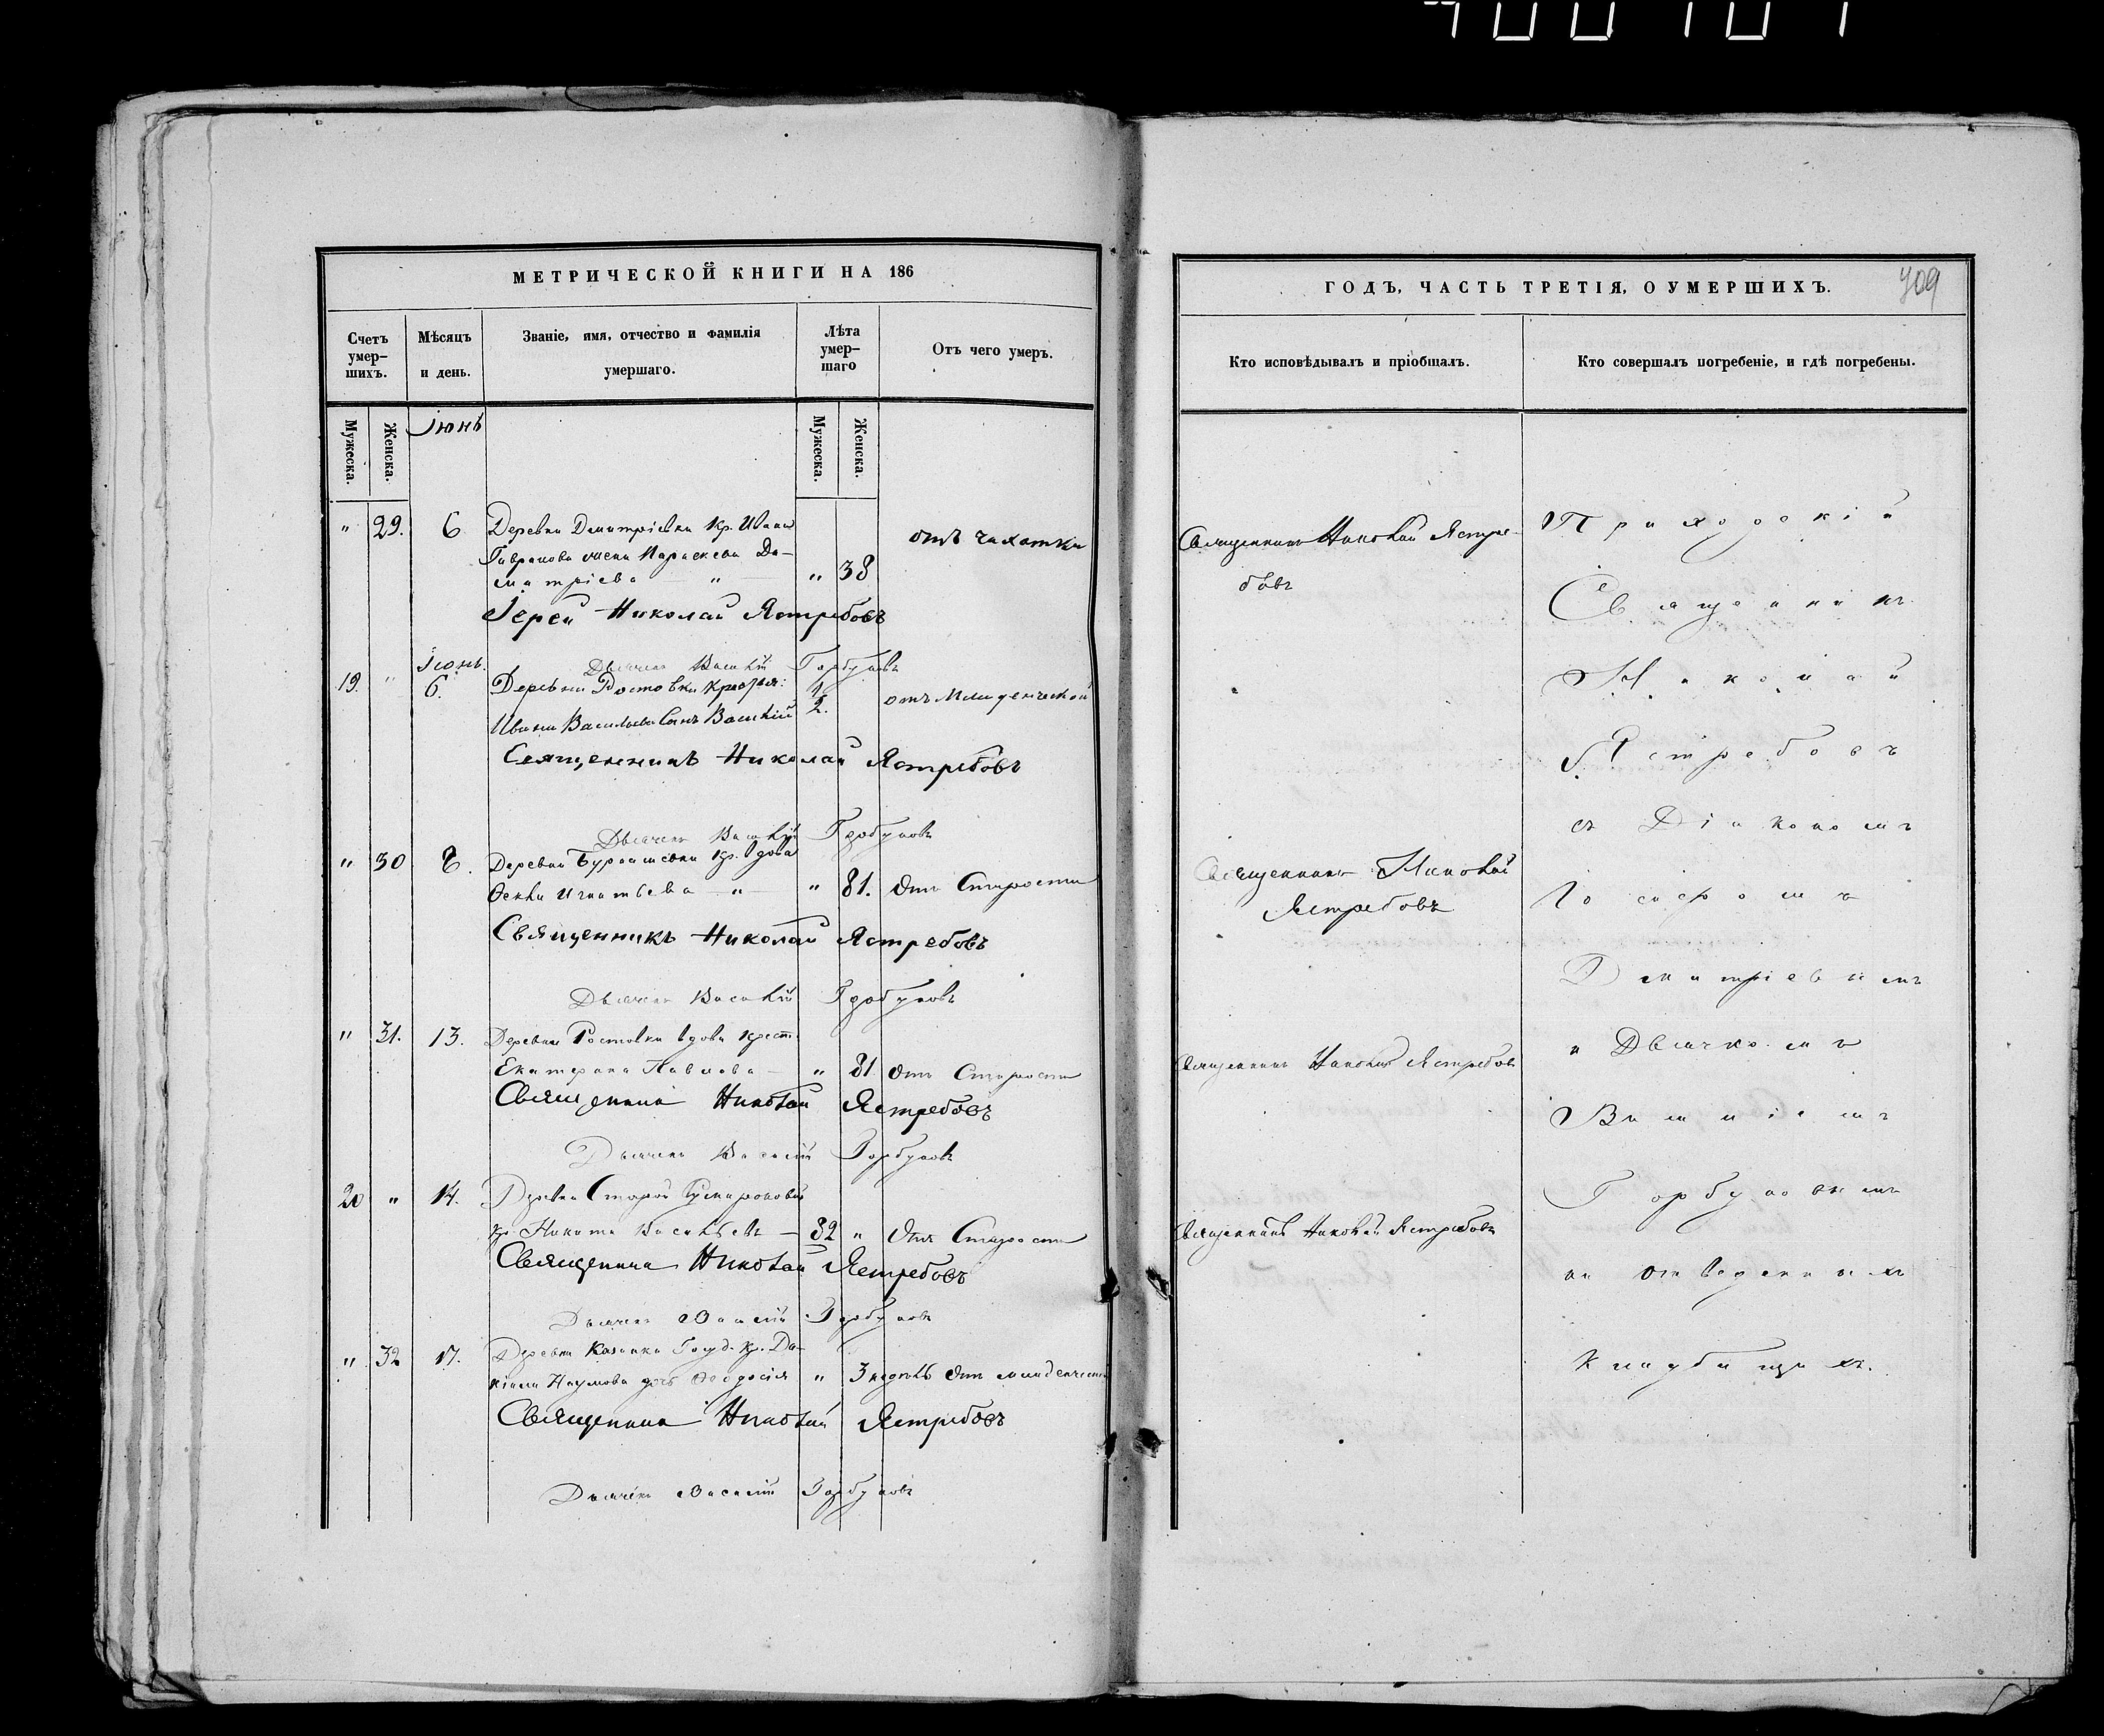 МЕТРИЧЕСКОЙ КНИГИ НА 186
Счетъ умер-
шихъ.
Мѣсяцъ
и день.
Званіе, имя, отчество и фамилія
умершаго.
Лѣта
умер-
шаго
Отъ чего умеръ.
Мужеска.
Женска.
Іюнь
Мужеска.
Женска.
" 29. 6 Деревни Дмитріевки Кр. Ивана
жена Параскева Ди-
митріева " " 38 отъ чахотки
Іерей Николай Ястребовъ
Дьячекъ Василій Горбуновъ
Іюнь.
19. " 6. Деревни Ростовки крестья: 1/2. отъ Младенческой
Ивана Васильева Сынъ Василій
Священникъ Николай Ястребовъ
Дьячекъ Василій Горбуновъ
" 30 8. Деревни кр. вдова
Игнатьева " " 81. Отъ Старости
Священникъ Николай Ястребовъ
Дьячекъ Василій Горбуновъ
" 31. 13. Деревни Ростовки вдова крест.
Екатерина Павлова " 81 Отъ Старости
Священникъ Николай Ястребовъ
Дьячекъ Василій Горбуновъ
20 " 14. Древни Старой
кр Никита Васильевъ 82 " Отъ Старости
Священникъ Николай Ястребовъ
Дьячекъ Василій Горбуновъ
" 32 17. Деревни Казанки Госуд. Кр. Да-
ніила Наумова дочь Ѳеодосія " 3 недѣль Отъ младенческой
Священникъ Николай Ястребовъ
Дьячекъ Василій Горбуновъ
ГОДЪ, ЧАСТЬ ТРЕТІЯ, О УМЕРШИХЪ.
709
Кто исповѣдывалъ и пріобщалъ.
Кто совершалъ погребеніе, и гдѣ погребены.
Священникъ Николай Ястре-
бовъ
Священникъ Николай
Ястребовъ
Священникъ Николай Ястребовъ
Священникъ Николай Ястребовъ
Приходскій
Священникъ
Николай
Ястребовъ
съ Діакономъ
Іосифомъ
Дмитріевымъ
и Дьячкомъ
Василіемъ
Горбуновымъ
на отведенныхъ
кладбищахъ.